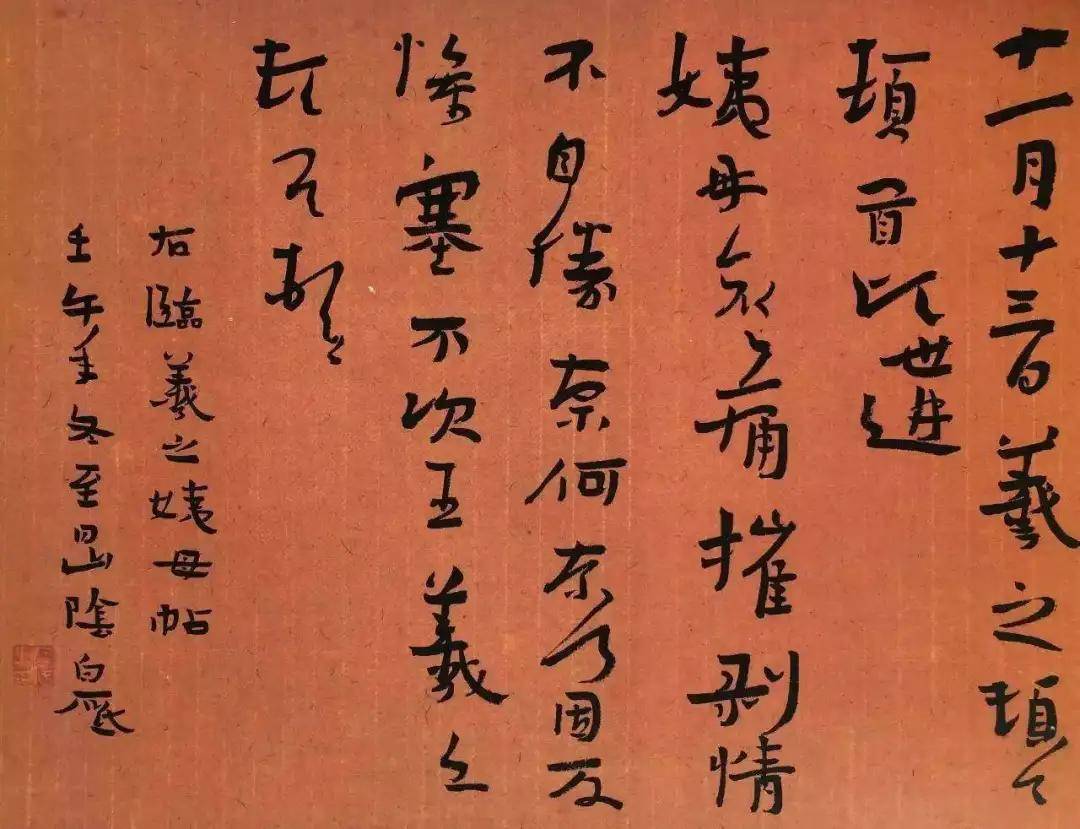 十一月十三日羲之頓々
頓首
姨母哀々痛摧剝情
不自勝奈何奈何因反
慘塞不次王羲之
頓首頓々
右臨羲之姨母帖
壬午年冬至日山陰白砥